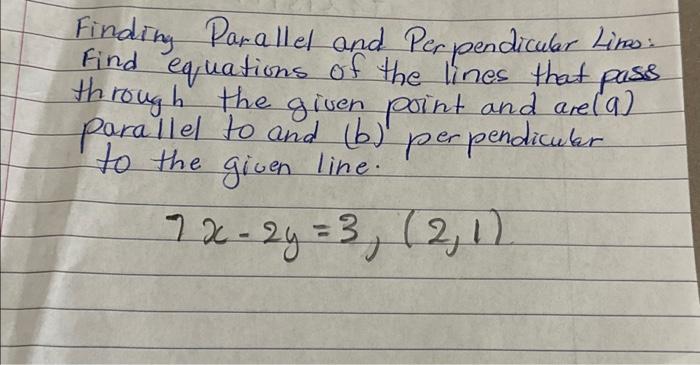 Finding Parallel and Perpendicular Lines:
Find equations of the lines that pass
through the given point and are(a)
parallel to and (b) perpendicular
to the given line.
7x-2y=3, (2,1)